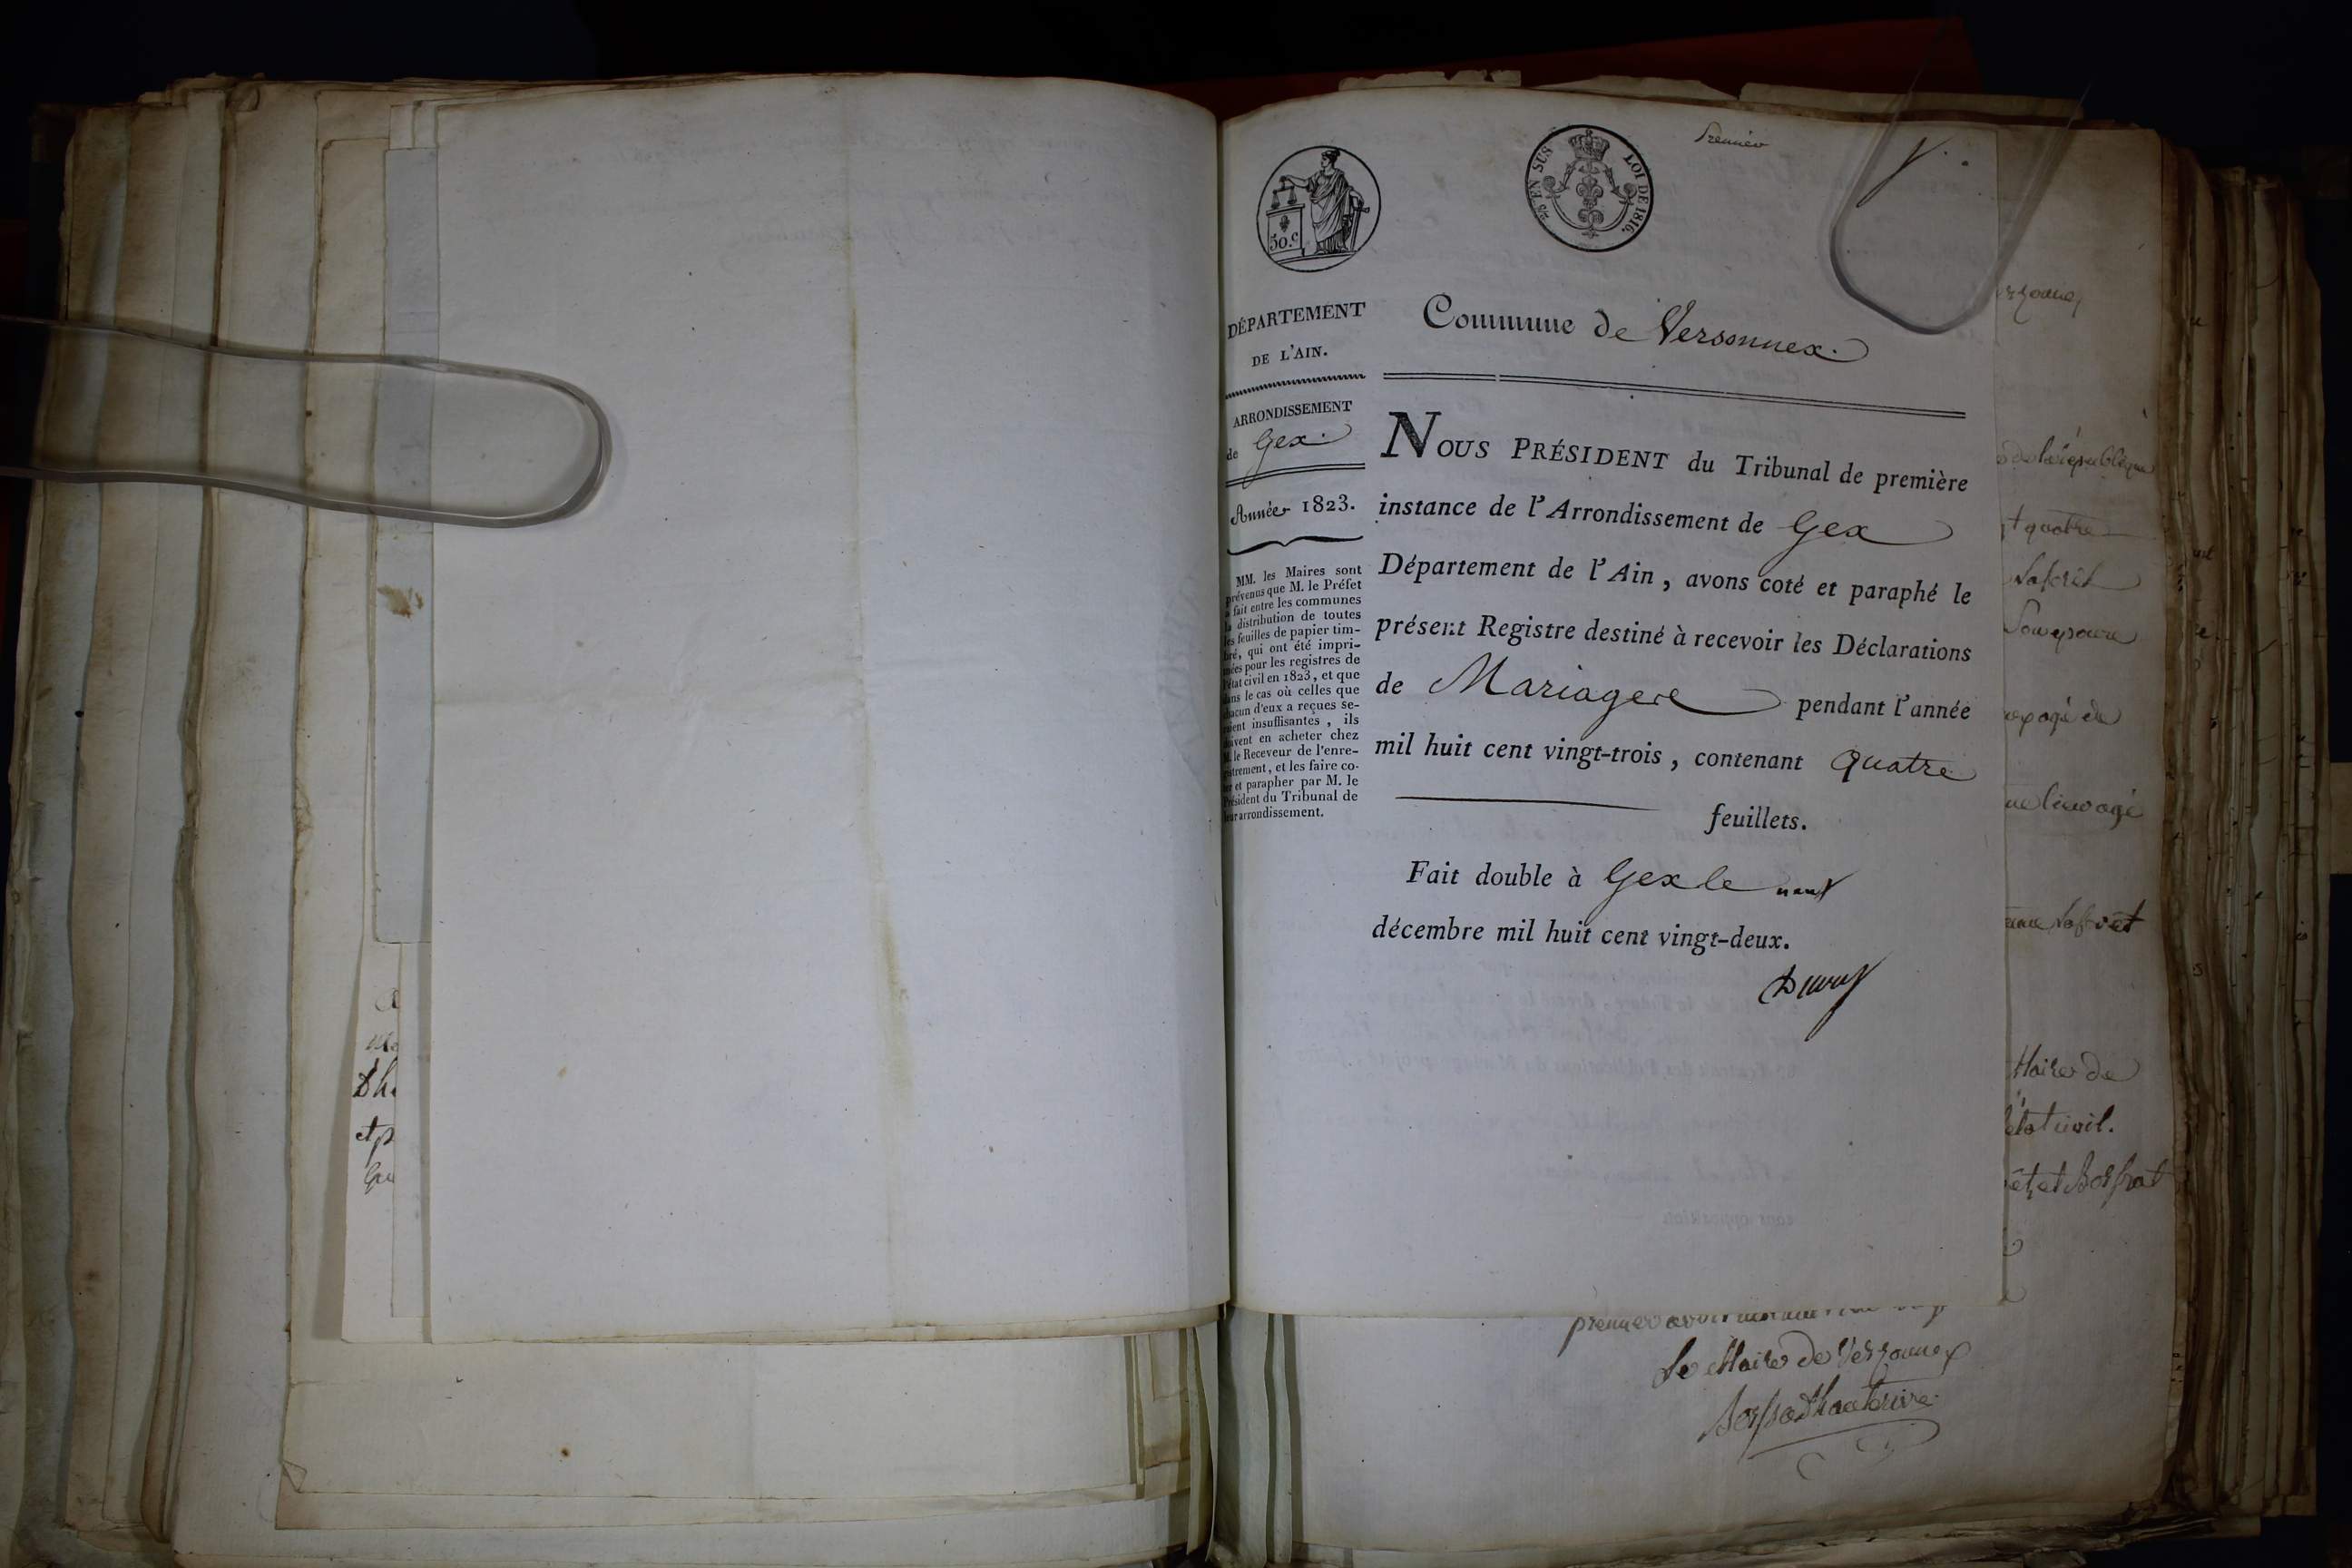 Premier
25.e EN SUS LOI DE 1816.
50.c
DÉPARTEMENT
DE L'AIN.
ARRONDISSEMENT
de Gex.
Année 1823.
MM. les Maires sont
prévenus que M. le Préfet
a fait entre les communes
la distribution de toutes
les feuilles de papier tim-
bré, qui ont été impri-
mées pour les registres de
l'état civil en 1823, et que
dans le cas où celles que
chacun d'eux a reçues se-
raient insuffisantes, ils
doivent en acheter chez
M. le Receveur de l'enre-
gistrement, et les faire co-
ter et parapher par M. le
Président du Tribunal de
leur arrondissement.
Commune de Versonnex.
NOUS PRÉSIDENT du Tribunal de première
instance de l'Arrondissement de Gex
Département de l'Ain, avons coté et paraphé le
présent Registre destiné à recevoir les Déclarations
de Mariages pendant l'année
mil huit cent vingt-trois, contenant Quatre
feuillets.
Fait double à Gex le neuf
décembre mil huit cent vingt-deux.
de la république
t quatre
Lafrêt
age de
Lafrêt
Maire de
l'état civil.
et
Dh
et p
premier
Le Maire de Verzonnex